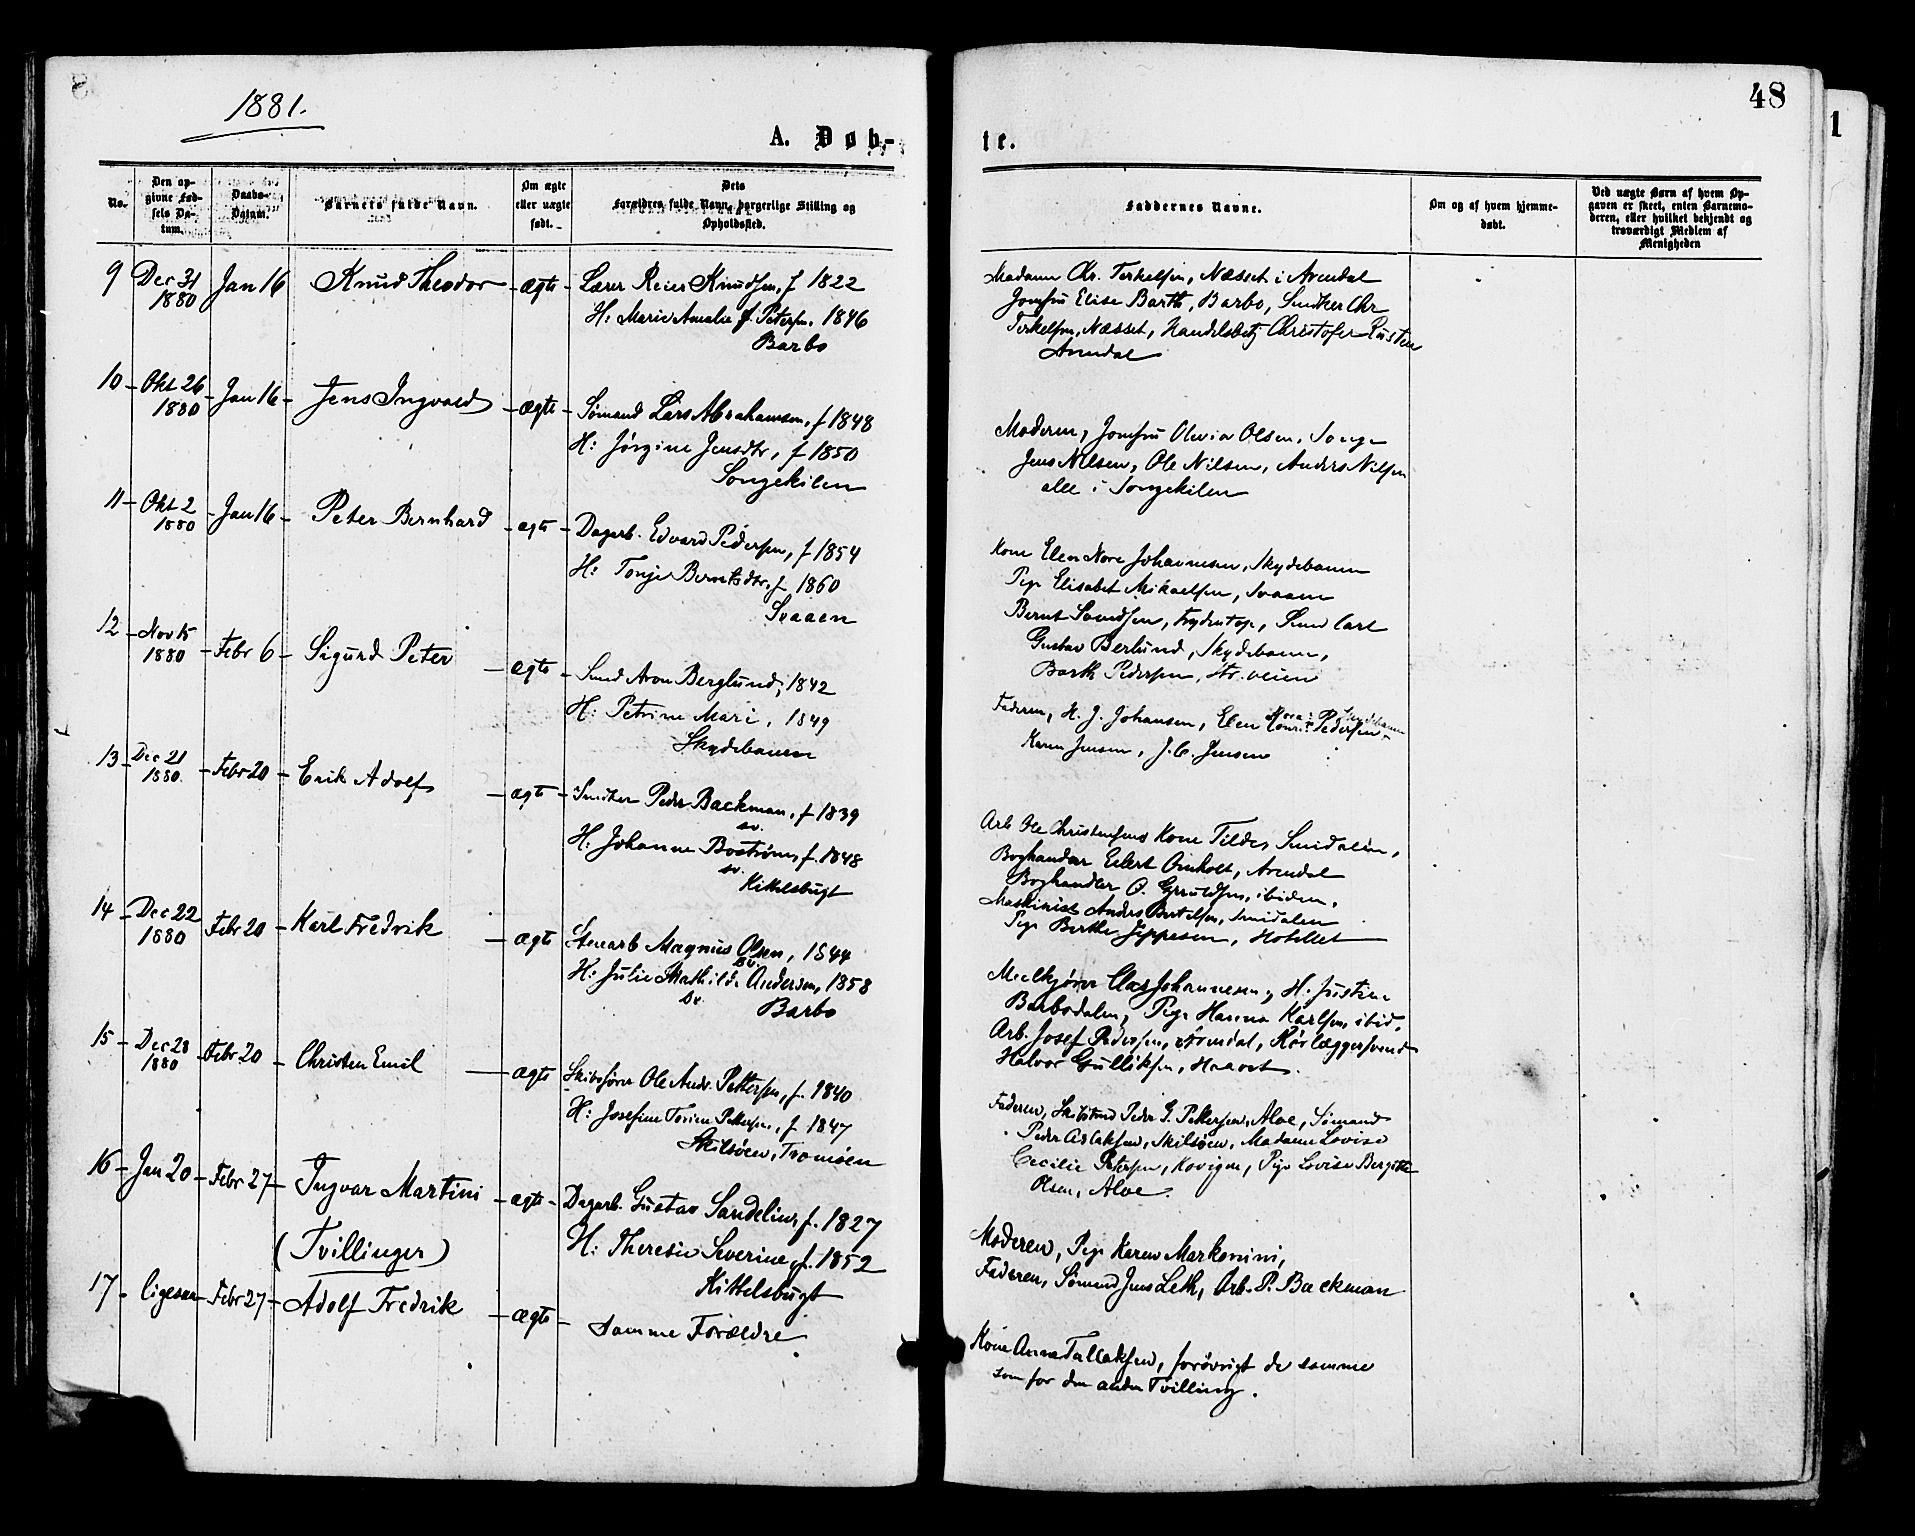 1881.
48
1
A. Døb-
te.
No.
Den op-
givne Fød-
sels Da-
tum.
Daabs-
Datum.
Barnets fulde Navn.
Om ægte
eller uægte
født.
Dets
Forældres fulde Navn, borgerlige Stilling og
Opholdssted.
Faddernes Navne.
Om og af hvem hjemme-
døbt.
Ved uægte Børn af hvem Op-
gaven er skeet, enten Barnemo-
deren, eller hvilket bekjendt og
troværdigt Medlem af
Menigheden
9 Dec 31 1880 Jan 16 Knud Theodor ægte Lærer Reier Knudsen, f 1822
H: Marie Amalie f. Petersen. 1846
Barbo
Madame Chr. Terkelsen, Næsset i Arendal
Jomfru Elise Barth, Barbo, Snedker Chr
Terkelsen, Næsset, Handelsbetj Christofer
Arendal
10 Okt 26 1880 Jan 16 Jens Ingvald ægte Sømand Lars Abrahamsen, f 1848
H: Jørgine Jensdtr, f 1850
Songekilen
Moderen, Jomfru Olevia Olsen, Songe
Jens Nilsen, Ole Nilsen, Anders Nilsen
alle i Songekilen
11 Okt 2 1880 Jan 16 Peter Bernhard ægte Dagarb. Edvard Pedersen, f 1854
H: Tonje Berntsdtr, f 1860
Svaaen
Kone Elen Nore Johannesen, Skydebanen
Pige Elisabet Mikaelsen, Svaaen
Bernt Smed Carl
Gustav Berlund, Skydebanen,
Barth Pedersen, Str.veien
12 Nov 15 1880 Febr 6 Sigurd Peter ægte Smed Aron Berglund, 1842
H: Petrine Mari, 1849
Skydebanen
Faderen, H. J. Johansen, Elen Pedersen
Karen Jensen, J. C. Jensen
13 Dec 21 1880 Febr 20 Erik Adolf ægte Snedker Peder Backman, f 1839
sv.
H. Johanne Bostrøm, f. 1848
sv.
Kittelsbugt
Arb Ole Christensens Kone Tilde, Smidalen,
Boghandler Eilert Omholt, Arendal
Boghandler O. ibidem,
Maskinist Anders Bertelsen, Smidalen
Pige Berthe Jeppesen, Hotellet
14 Dec 22 1880 Febr 20 Karl Fredrik ægte Stenarb Magnus Olsen, 1844
sv.
H: Julie Mathilde Andersen, 1858
sv.
Barbo
Melkjører Johannesen, H. Justine
Barbodalen, Pige Hanna Karlsen, ibid,
Arb. Josef Pedersen, Arendal, Rørlæggersvend
Halvor Gulliksen, Haavet.
15 Dec 28 1880 Febr 20 Christen Emil ægte Skibsfører Ole Andr. Pettersen, f. 1840
H: Josefine Torine Pettersen, f 1847
Skilsøen, Tromøen
Faderen, Skibstmd Peder G. Pettersen, Alve, Sømand
Peder Aslaksen, Skilsøen, Madame Lovise
Cecilie Petersen, Kovigen, Pige Lovise Bergitte
Olsen, Alve.
16 Jan 20 Febr 27 Ingvar Martin ægte Dagarb. Gustav Sandelin, f. 1827
H: Theresie Severine, f. 1852
Kittelsbugt
(Tvillinger)
Moderen, Pige Karen
Faderen, Sømand Jens Leth, Arb. P. Backman
17 ligesaa Febr 27 Adolf Fredrik ægte Samme Forældre
Kone Anne Tallaksen, forøvrigt de samme
som for den anden Tvilling.